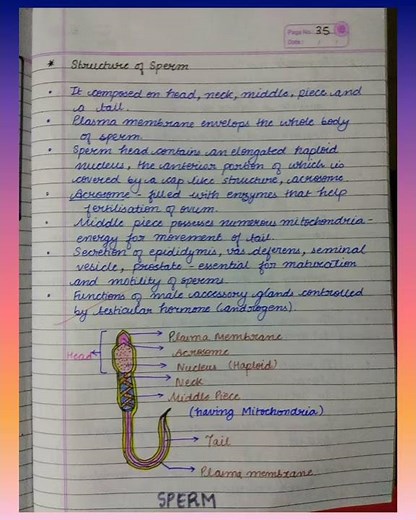 Page No. 35
Date:
* Structure of Sperm
• It composed on head, neck, middle, piece and
a tail.
• Plasma membrane envelops the whole body
of sperm.
• Sperm head contains an elongated haploid
nucleus, the anterior portion of which is
covered by a cap like structure, acrosome.
• Acrosome - filled with enzymes that help
fertilisation of ovum.
• Middle piece possess numerous mitochondria -
energy for movement of tail.
• Secretion of epididymis, vas deferens, seminal
vesicle, prostate - essential for maturation
and motility of sperms.
• Functions of male accessory glands controlled
by testicular hormone (androgens).
Plasma Membrane
Acrosome
Head
Nucleus (Haploid)
Neck
Middle Piece
(having Mitochondria)
Tail
Plasma membrane
SPERM